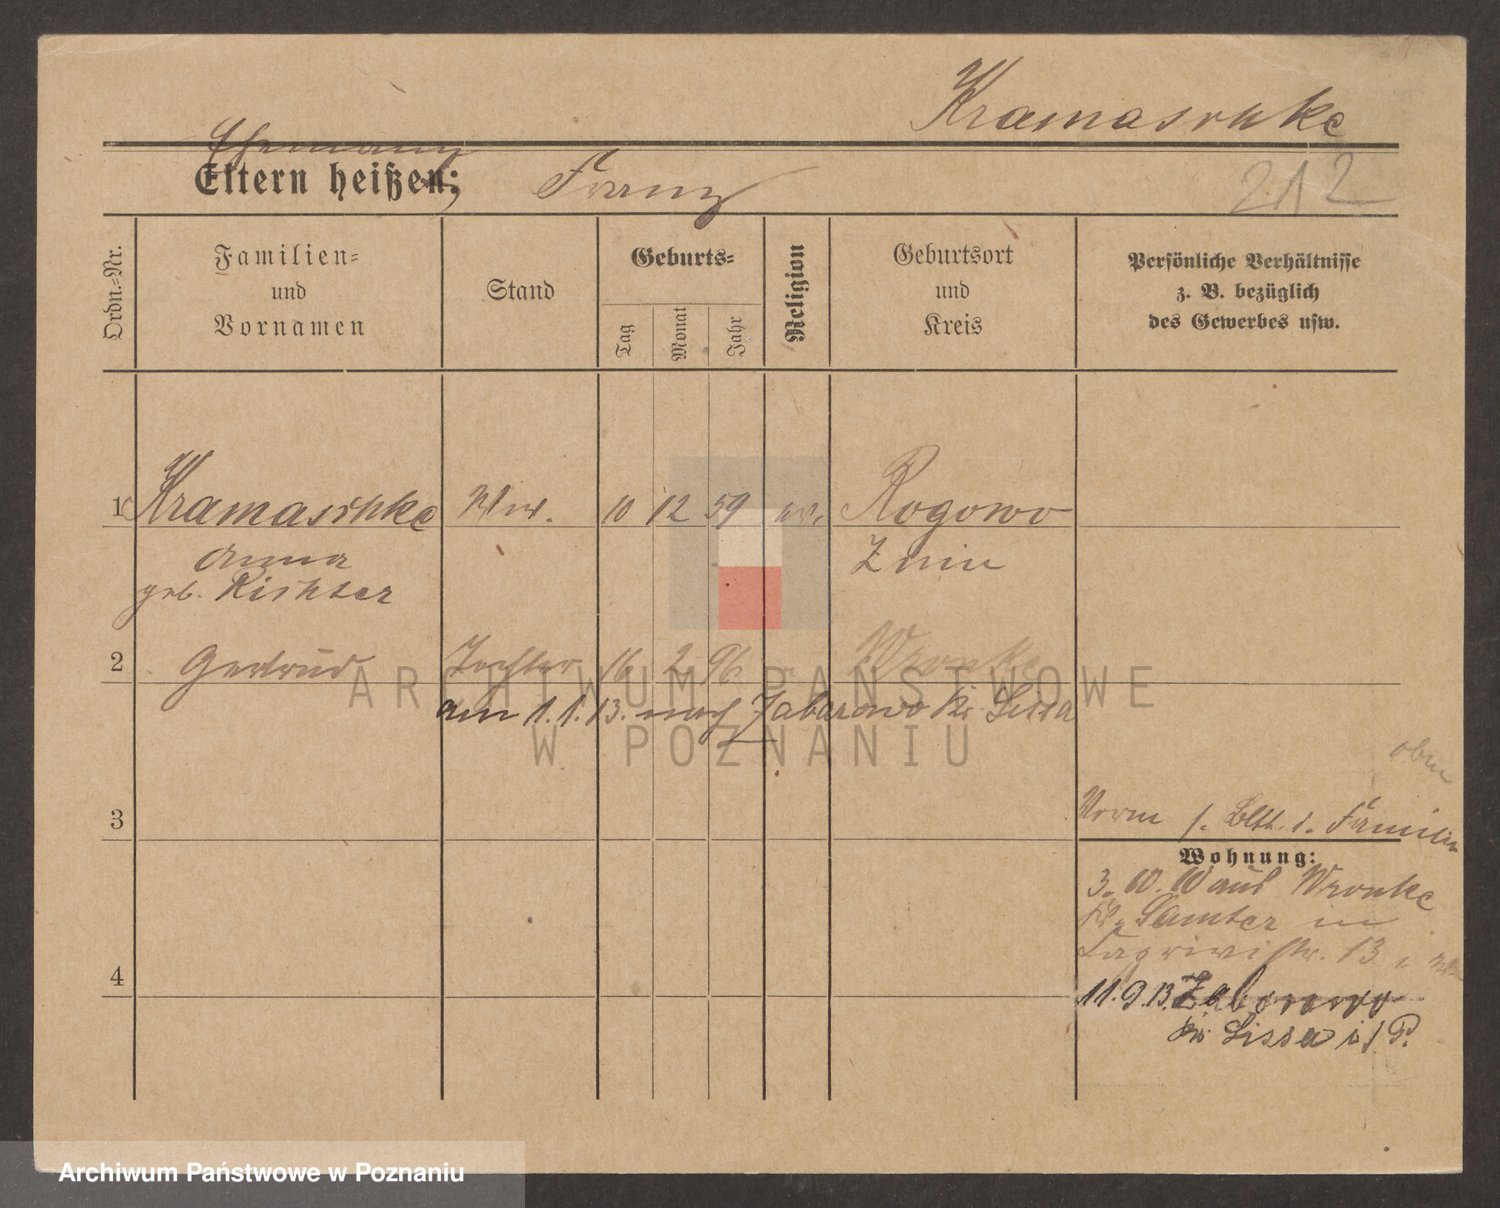 Kramaschke
Ehemann
Eltern heißen: Franz
212
Ordn.-Nr.
Familien-
und
Vornamen
Stand
Geburts-
Tag
Monat
Jahr
Religion
Geburtsort
und
Kreis
Persönliche Verhältnisse
z. B. bezüglich
des Gewerbes usw.
1 Kramaschke Ww. 10 12 59 ev. Rogowo
Anna Znin
geb. Richter
2 Gertrud Tochter 16 2 96 Wronke
am 1.1.13. nach Zaborowo Kr. Lissa
oben
3
Norm f. d. Familie
Wohnung:
3. 10. 10 aus Wronke
Kr. Samter in
13
4
11.9.13. Zaborowo
Kr. Lissa i/P.
ARCHIWUM PAŃSTWOWE
W POZNANIU
Archiwum Państwowe w Poznaniu